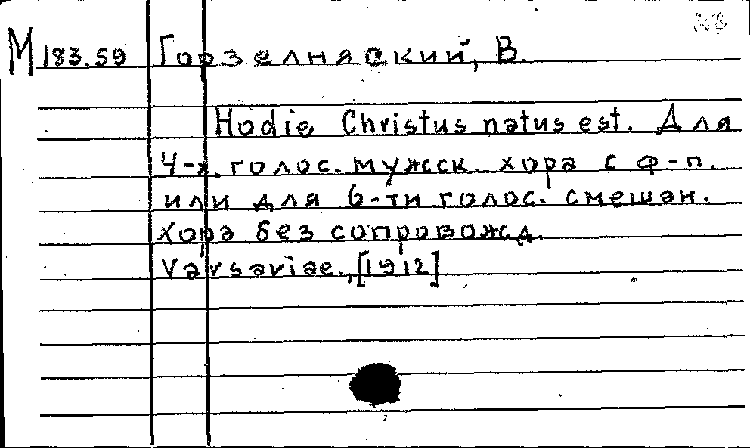 М 183.59 Горзелняский, В.
Hodie Christus natus est. Для
4-х. голос. мужск. хора с ф-п.
или для 6-ти голос. смешан.
хора без сопровожд.
Varsaviae., [1912]